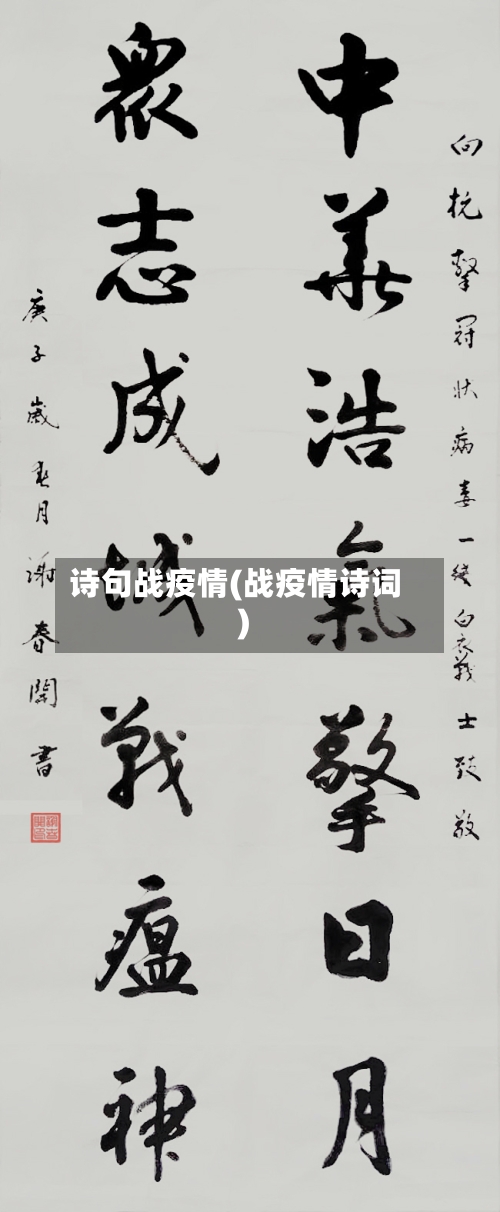 向抗擊冠狀病毒一綫白衣戰士致敬
中華浩氣擎日月
眾志成城戰瘟神
庚子歲春月謝春書
诗句战疫情(战疫情诗词
)